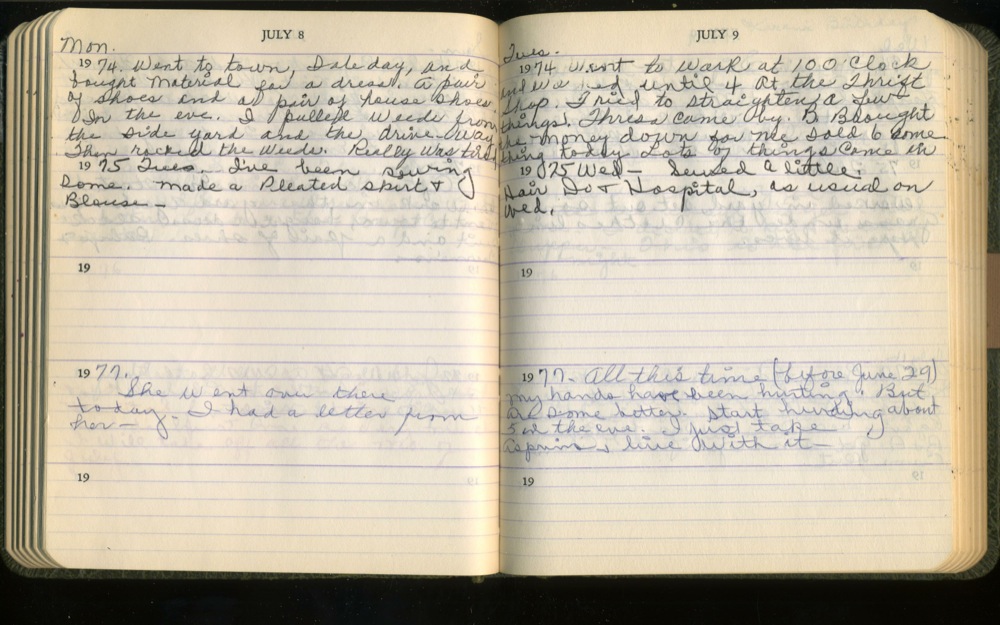 JULY 8
Mon.
1974. Went to town, Dale day, and
bought material for a dress. a pair
of shoes and a pair of house shoes.
In the eve. I pulled weeds from
the side yard and the drive-way
Then rocked the weeds. Really was tired
1975 Tues. I've been sewing
Some. made a Pleated skirt &
Blouse —
19
1977.
She went over there
today. I had a letter from
her —
19
JULY 9
Tues.
1974 Went to work at 1 00 Clock
and worked until 4 At the Thrift
Shop. Tried to straighten a few
things. Thresa came by. B Brought
the money down for me sold 6 some
thing today Lots of things Come in
1975 Wed — Sewed a little.
Hair Do & Hospital, as usual on
Wed.
19
1977 - All this time (before June 29)
my hands have been hurting. But
are some better. Start hurting about
5 in the eve. I just take
Aspirin & live with it —
19